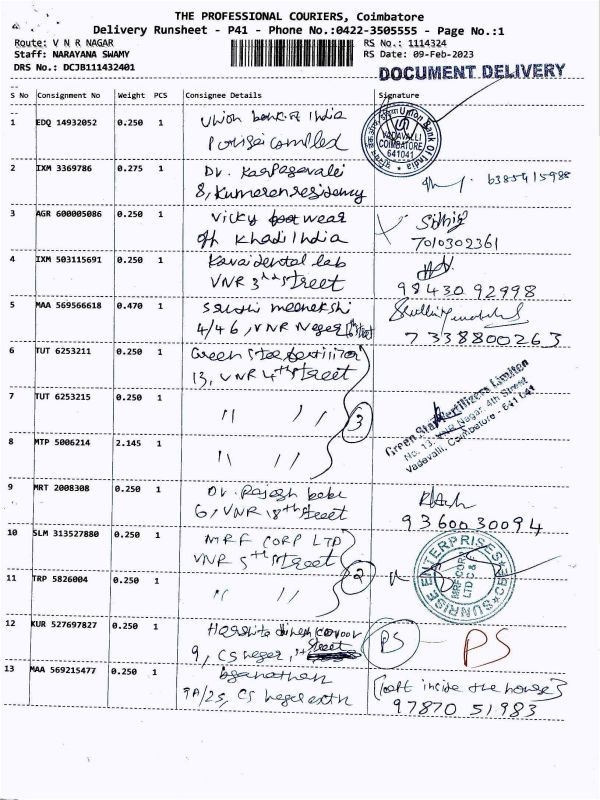 THE PROFESSIONAL COURIERS, Coimbatore
Delivery Runsheet - P41 - Phone No.:0422-3505555 - Page No.:1
Route: V N R NAGAR RS No.: 1114324
Staff: NARAYANA SWAMY RS Date: 09-Feb-2023
DRS No.: DCJB111432401
DOCUMENT DELIVERY
S No Consignment No Weight PCS Consignee Details Signature
1 EDQ 14932052 0.250 1 Union bank of India
Union Bank Of India
VADAVALLI
COIMBATORE
641041
2 IXM 3369786 0.275 1 Dr. Karpagavalei
8, Kumaran residency
6385415988
3 AGR 600005086 0.250 1 Vicky foot wear
off Khadi India
7010302361
4 IXM 503115691 0.250 1 Kavai dental lab
VNR 3rd street
98430 92998
5 MAA 569566618 0.470 1 meenekshi
4/46, VNR Nager street
7338800263
6 TUT 6253211 0.250 1 Green Star fertilizer
13, VNR 4th street
7 TUT 6253215 0.250 1 " "
3
Green Star Fertilizers Limited
No. 13, VNR Nagar, 4th Street
Vadavalli, Coimbatore - 641 041
8 MTP 5006214 2.145 1 " "
9 MRT 2008308 0.250 1 Dr. Rajesh babu
6, VNR 18th street
93600 30094
10 SLM 313527880 0.250 1 MRF CORP LTD
VNR 5th street
2
SUNRISE ENTERPRISES
MRF CORP
LTD C & F
11 TRP 5826004 0.250 1 " "
12 KUR 527697827 0.250 1
9, CS nager, street
PS - PS
13 MAA 569215477 0.250 1
9A/25, CS nager extn
(left inside the house)
97870 51983